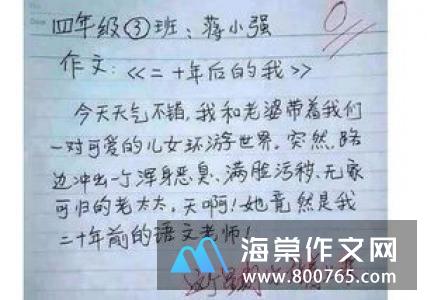 四年级③班：蒋小强
0
作文：《二十年后的我》
今天天气不错，我和老婆带着我们
一对可爱的儿女环游世界。突然，路
边冲出一个浑身恶臭、满脸污秽、无家
可归的老太太，天啊！她竟然是我
二十年前的语文老师！
海棠作文网
www.800765.com